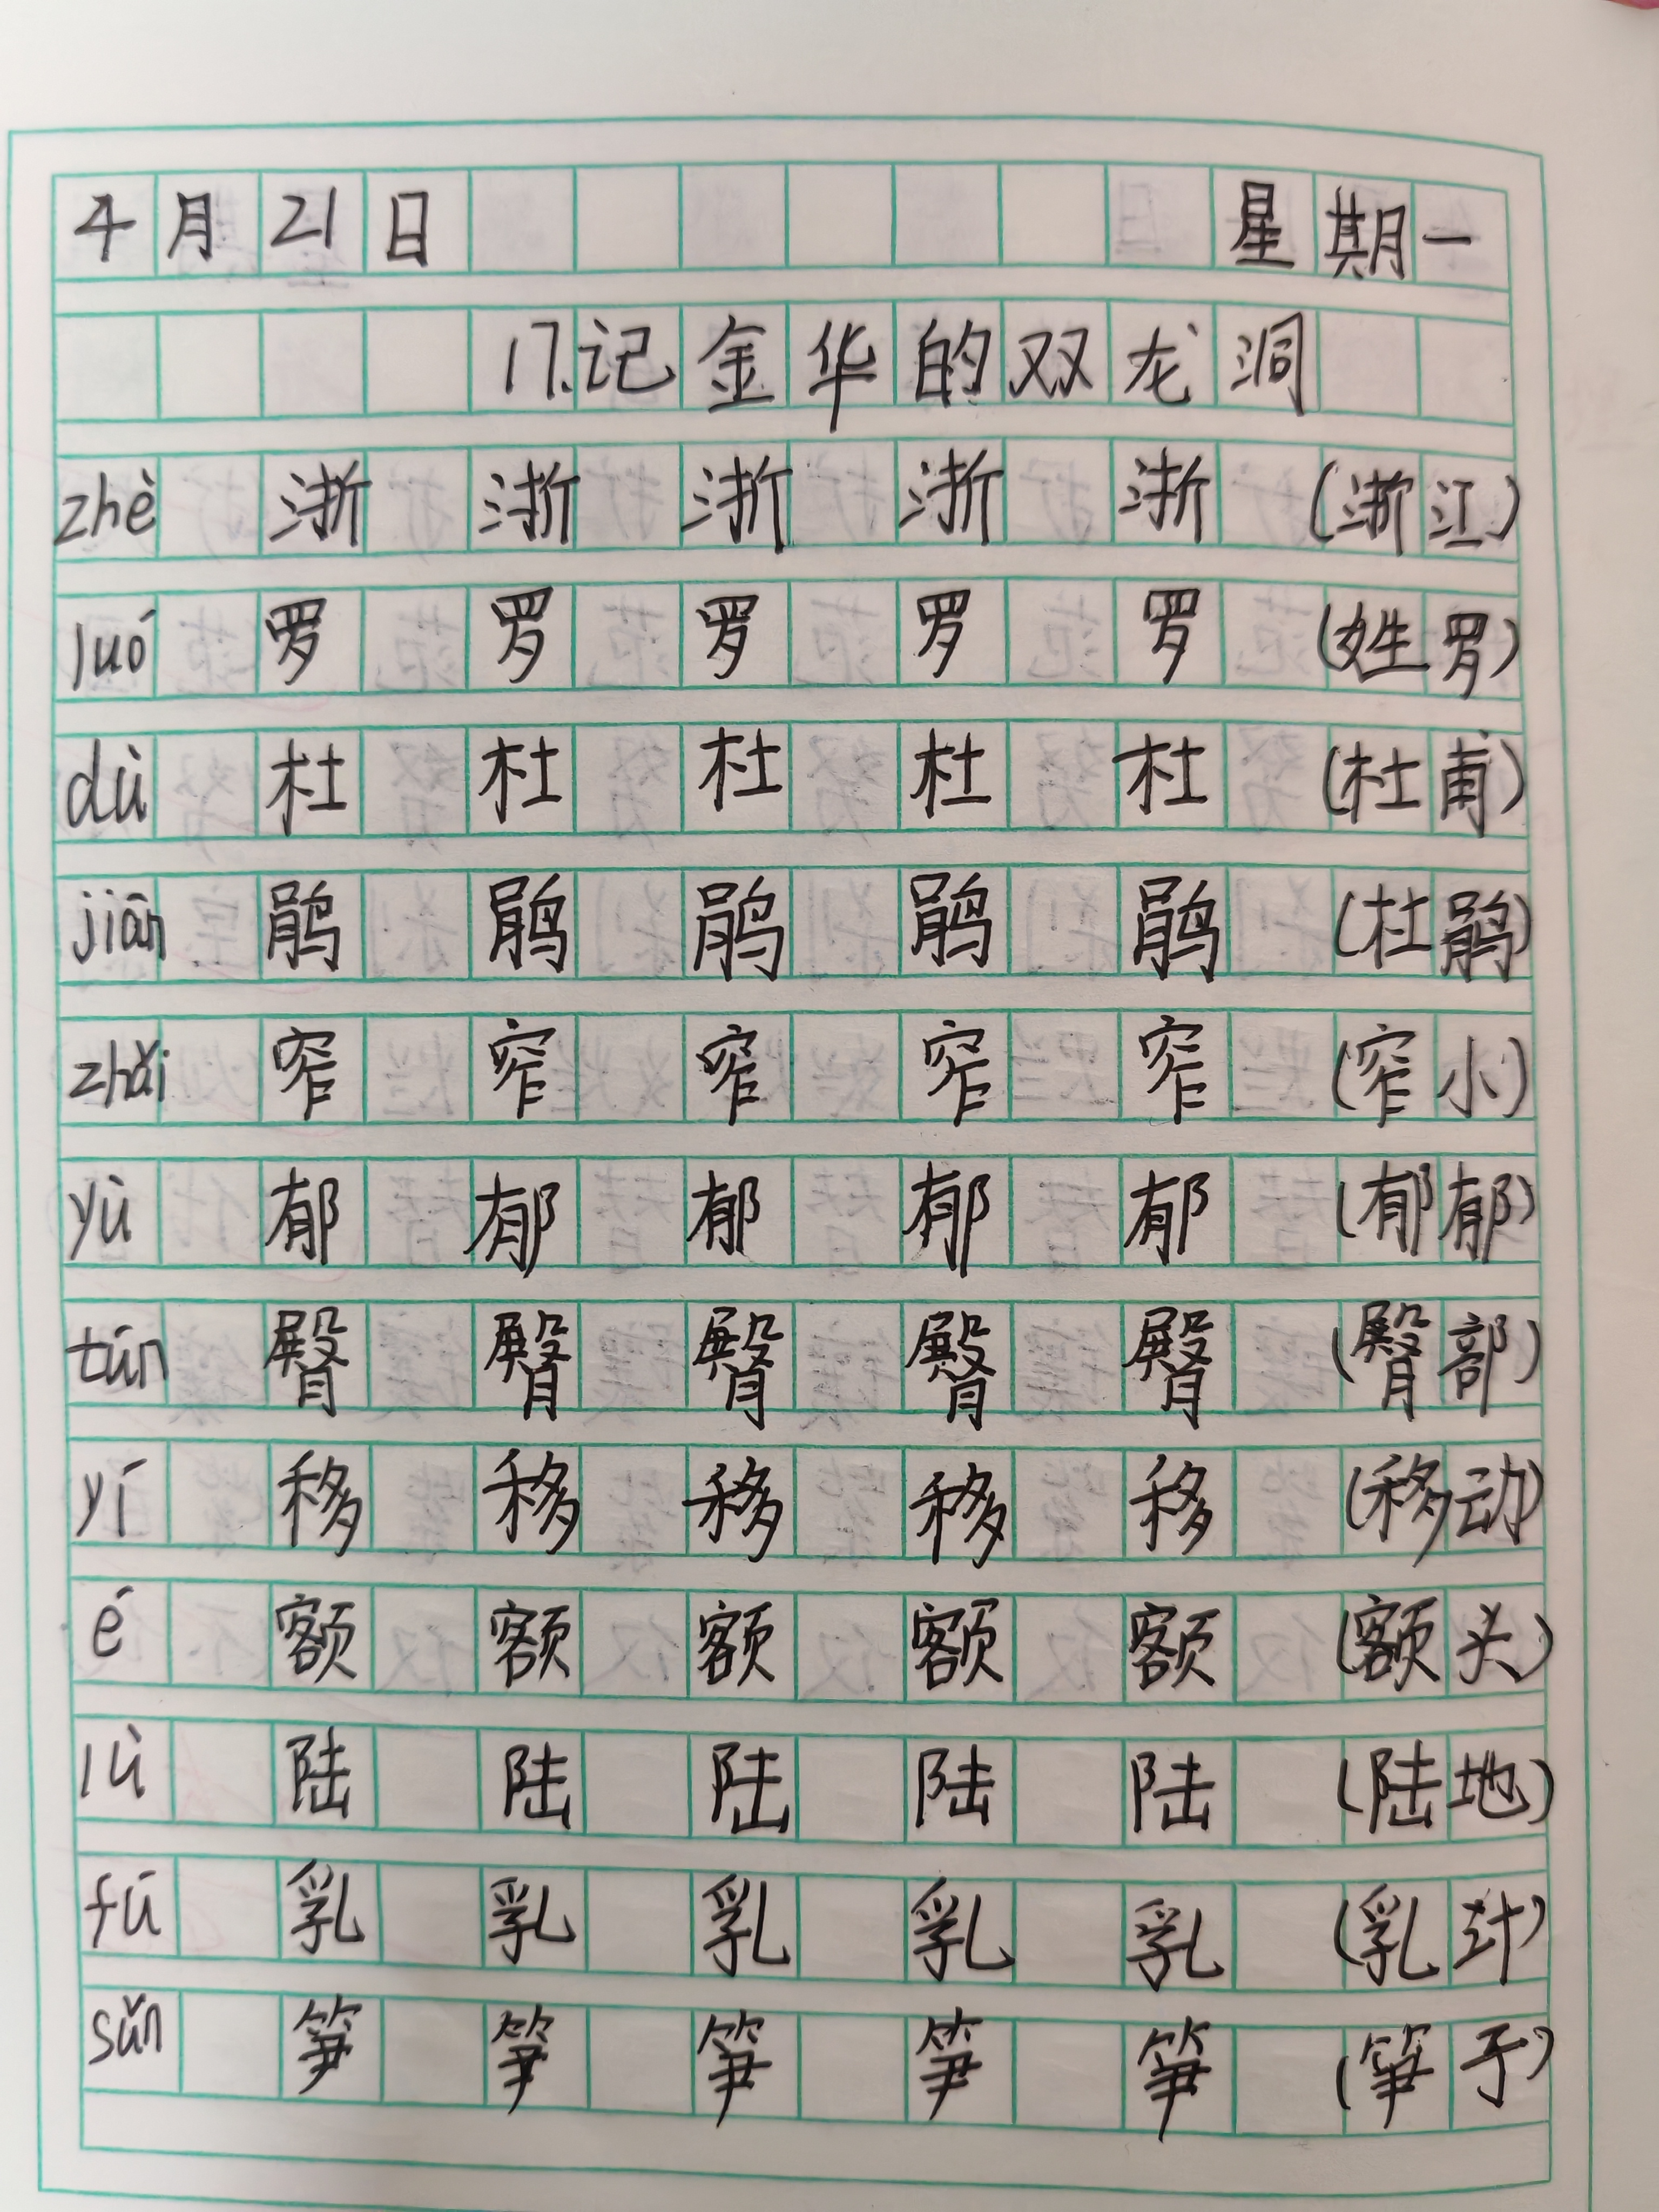 4月21日 星期一
17.记金华的双龙洞
zhè 浙 浙 浙 浙 浙 (浙江)
luó 罗 罗 罗 罗 罗 (姓罗)
dù 杜 杜 杜 杜 杜 (杜甫)
jiān 鹃 鹃 鹃 鹃 鹃 (杜鹃)
zhǎi 窄 窄 窄 窄 窄 (窄小)
yù 郁 郁 郁 郁 郁 (郁郁)
tún 臀 臀 臀 臀 臀 (臀部)
yí 移 移 移 移 移 (移动)
é 额 额 额 额 额 (额头)
lù 陆 陆 陆 陆 陆 (陆地)
fú 乳 乳 乳 乳 乳 (乳汁)
sǔn 笋 笋 笋 笋 笋 (笋子)